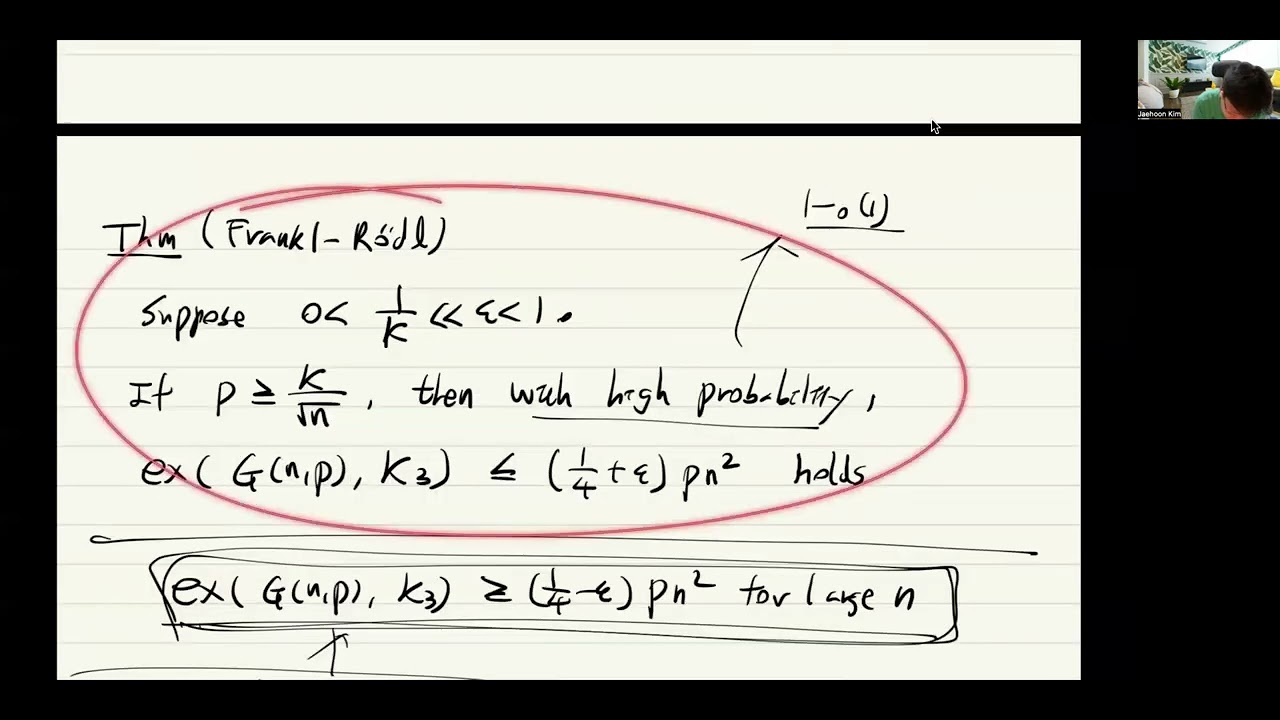 1-o(1)
Thm (Frankl-Rödl)
Suppose 0 < 1/K ≪ ε < 1.
If p ≥ K/√n, then with high probability,
ex( G(n,p), K₃) ≤ (1/4 + ε) pn² holds
ex( G(n,p), K₃) ≥ (1/4 - ε) pn² for large n
Jaehoon Kim